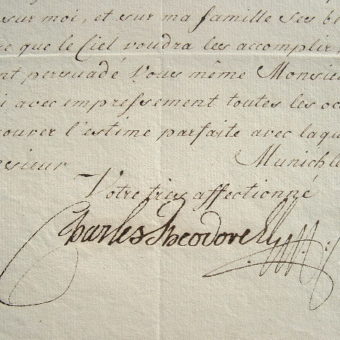 sur moi, et sur ma famille ses b
que le Ciel voudra les accomplir
nt persuadé Vous même Monsie
i avec empressement toutes les oc
rouver l'estime parfaite avec laqu
nsieur Munich le
Votre tres affectionne
Charles Theodore Elr